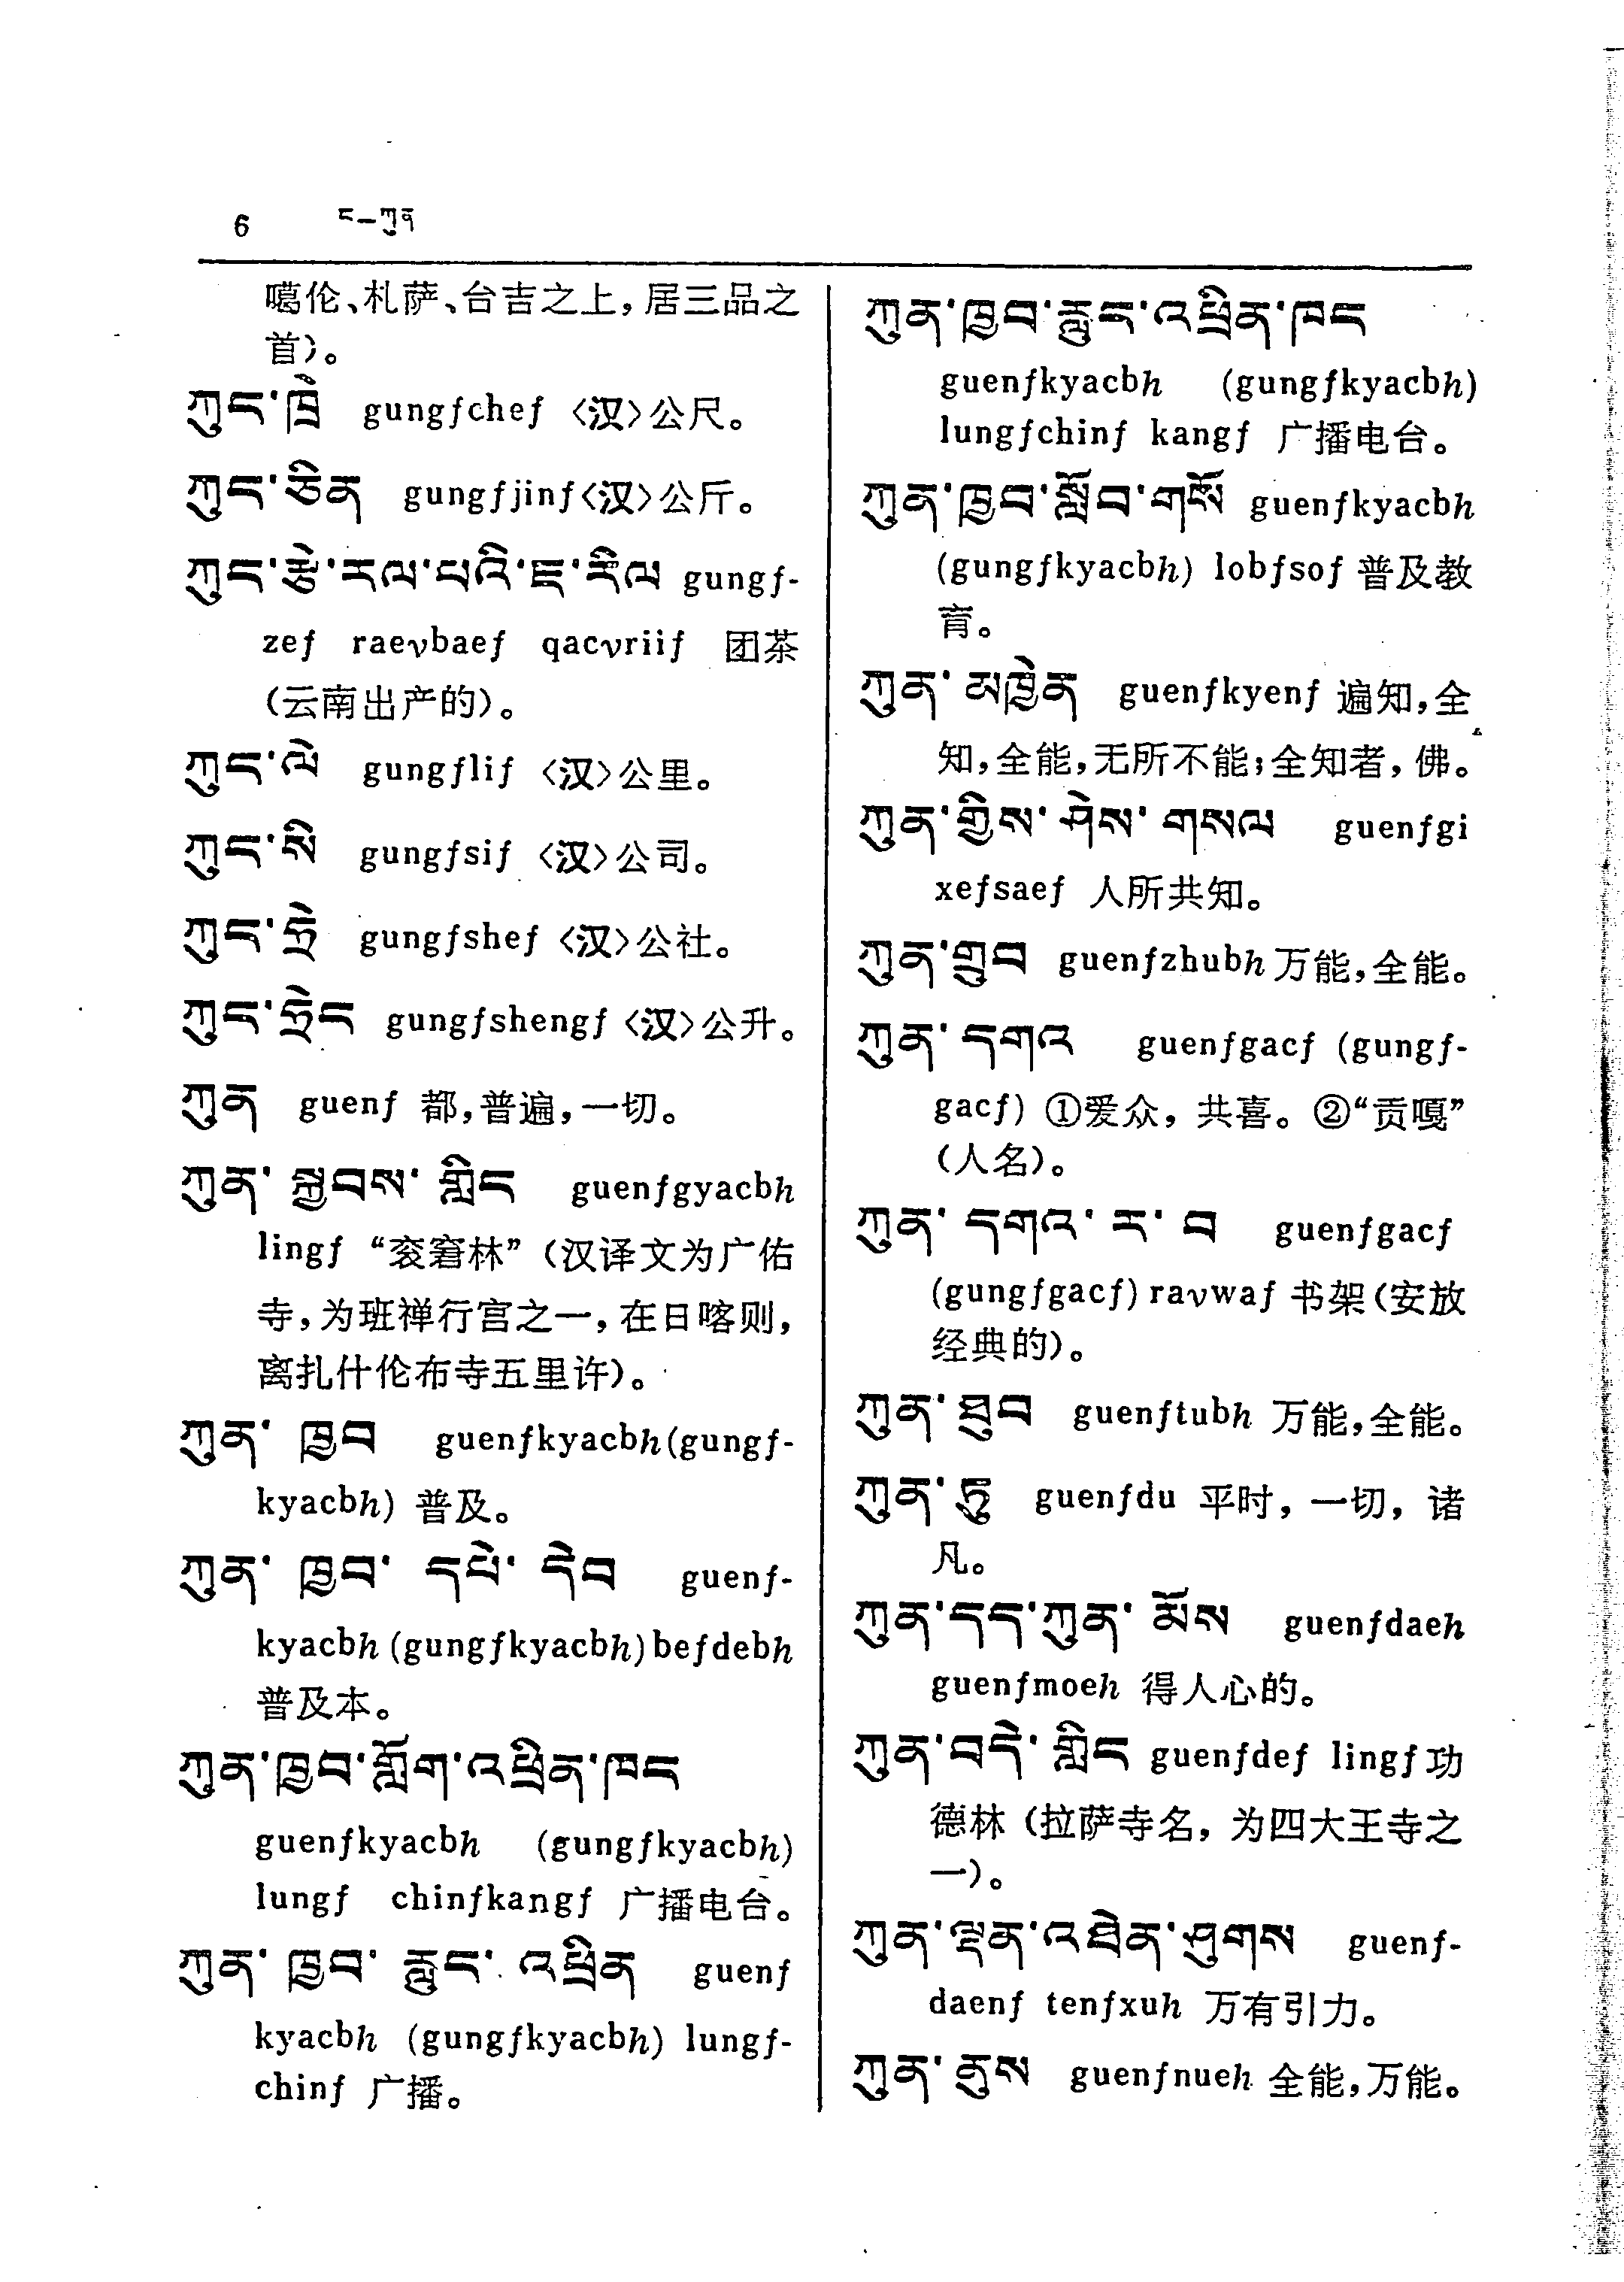 6 ང—ཀུན
噶伦、札萨、台吉之上，居三品之
首）。
ཀུང་ཁྲེ gungfchef 〈汉〉公尺。
ཀུང་ཅིན gungfjinf〈汉〉公斤。
ཀུང་རྩེ་རལ་པའི་ཇ་རིལ gungf-
zef raevbaef qacvriif 团茶
（云南出产的）。
ཀུང་ལེ gungflif 〈汉〉公里。
ཀུང་སི gungfsif 〈汉〉公司。
ཀུང་ཧྲེ gungfshef 〈汉〉公社。
ཀུང་ཧྲེང gungfshengf 〈汉〉公升。
ཀུན guenf 都，普遍，一切。
ཀུན་སྐྱབས་གླིང guenfgyacbh
lingf “衮窘林”（汉译文为广佑
寺，为班禅行宫之一，在日喀则，
离扎什伦布寺五里许）。
ཀུན་ཁྱབ guenfkyacbh(gungf-
kyacbh) 普及。
ཀུན་ཁྱབ་དཔེ་དེབ guenf-
kyacbh (gungfkyacbh) befdebh
普及本。
ཀུན་ཁྱབ་གློག་འཕྲིན་ཁང
guenfkyacbh (gungfkyacbh)
lungf chinfkangf 广播电台。
ཀུན་ཁྱབ་རླུང་འཕྲིན guenf
kyacbh (gungfkyacbh) lungf-
chinf 广播。
ཀུན་ཁྱབ་རླུང་འཕྲིན་ཁང
guenfkyacbh (gungfkyacbh)
lungfchinf kangf 广播电台。
ཀུན་ཁྱབ་སློབ་གསོ guenfkyacbh
(gungfkyacbh) lobfsof 普及教
育。
ཀུན་མཁྱེན guenfkyenf 遍知，全
知，全能，无所不能；全知者，佛。
ཀུན་གྱིས་ཤེས་གསལ guenfgi
xefsaef 人所共知。
ཀུན་གྲུབ guenfzhubh 万能，全能。
ཀུན་དགའ guenfgacf (gungf-
gacf) ①爱众，共喜。②“贡嘎”
（人名）。
ཀུན་དགའ་ར་བ guenfgacf
(gungfgacf) ravwaf 书架（安放
经典的）。
ཀུན་ཐུབ guenftubh 万能，全能。
ཀུན་ཏུ guenfdu 平时，一切，诸
凡。
ཀུན་དད་ཀུན་མོས guenfdaeh
guenfmoeh 得人心的。
ཀུན་བདེ་གླིང guenfdef lingf 功
德林（拉萨寺名，为四大王寺之
一）。
ཀུན་ལྡན་འཐེན་ཤུགས guenf-
daenf tenfxuh 万有引力。
ཀུན་ནུས guenfnueh 全能，万能。